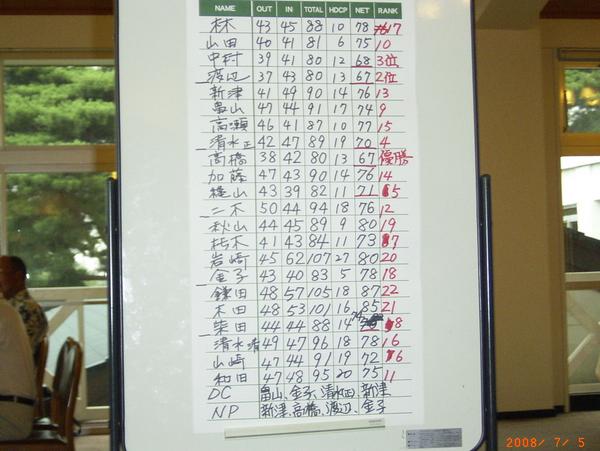 NAME OUT IN TOTAL HDCP NET RANK
林 43 45 88 10 78 17
山田 40 41 81 6 75 10
中村 39 41 80 12 68 3位
渡辺 37 43 80 13 67 2位
新津 41 49 90 14 76 13
畠山 47 44 91 17 74 9
高瀬 46 41 87 10 77 15
清水正 42 47 89 19 70 4
高橋 38 42 80 13 67 優勝
加藤 47 43 90 14 76 14
横山 43 39 82 11 71 5
二木 50 44 94 18 76 12
秋山 44 45 89 9 80 19
栃木 41 43 84 11 73 7
岩崎 45 62 107 27 80 20
金子 43 40 83 5 78 18
鎌田 48 57 105 18 87 22
木田 48 53 101 16 85 21
柴田 44 44 88 14 74 8
清水清 49 47 96 18 78 16
山崎 47 44 91 19 72 6
和田 47 48 95 20 75 11
DC 畠山、金子、清水正、新津
NP 新津、高橋、渡辺、金子
2008/ 7/ 5